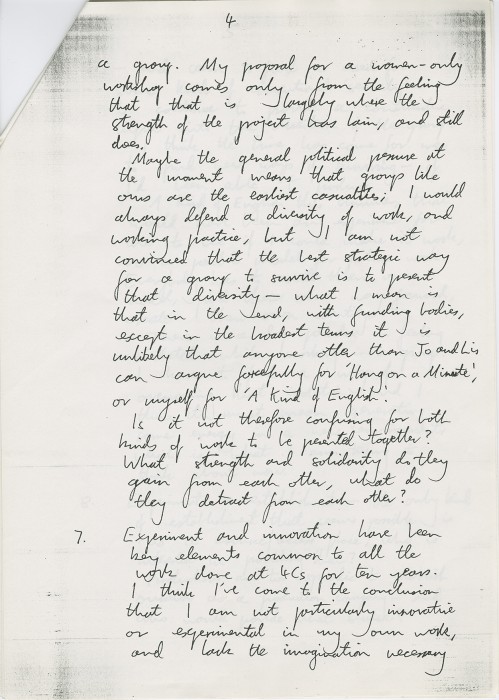 4
a group. My proposal for a women-only
workshop comes only from the feeling
that that is largely where the
strength of the project has lain, and still
does.
Maybe the general political pressure at
the moment means that groups like
ours are the earliest casualties; I would
always defend a diversity of work, and
working practice, but I am not
convinced that the best strategic way
for a group to survive is to present
that diversity — what I mean is
that in the end, with funding bodies,
except in the broadest terms it is
unlikely that anyone other than Jo and Lis
can argue forcefully for 'Hang on a Minute',
or myself for 'A Kind of English'.
Is it not therefore confusing for both
kinds of work to be presented together?
What strength and solidarity do they
gain from each other, what do
they detract from each other?
7. Experiment and innovation have been
key elements common to all the
work done at 4Cs for ten years.
I think I've come to the conclusion
that I am not particularly innovative
or experimental in my own work,
and lack the imagination necessary